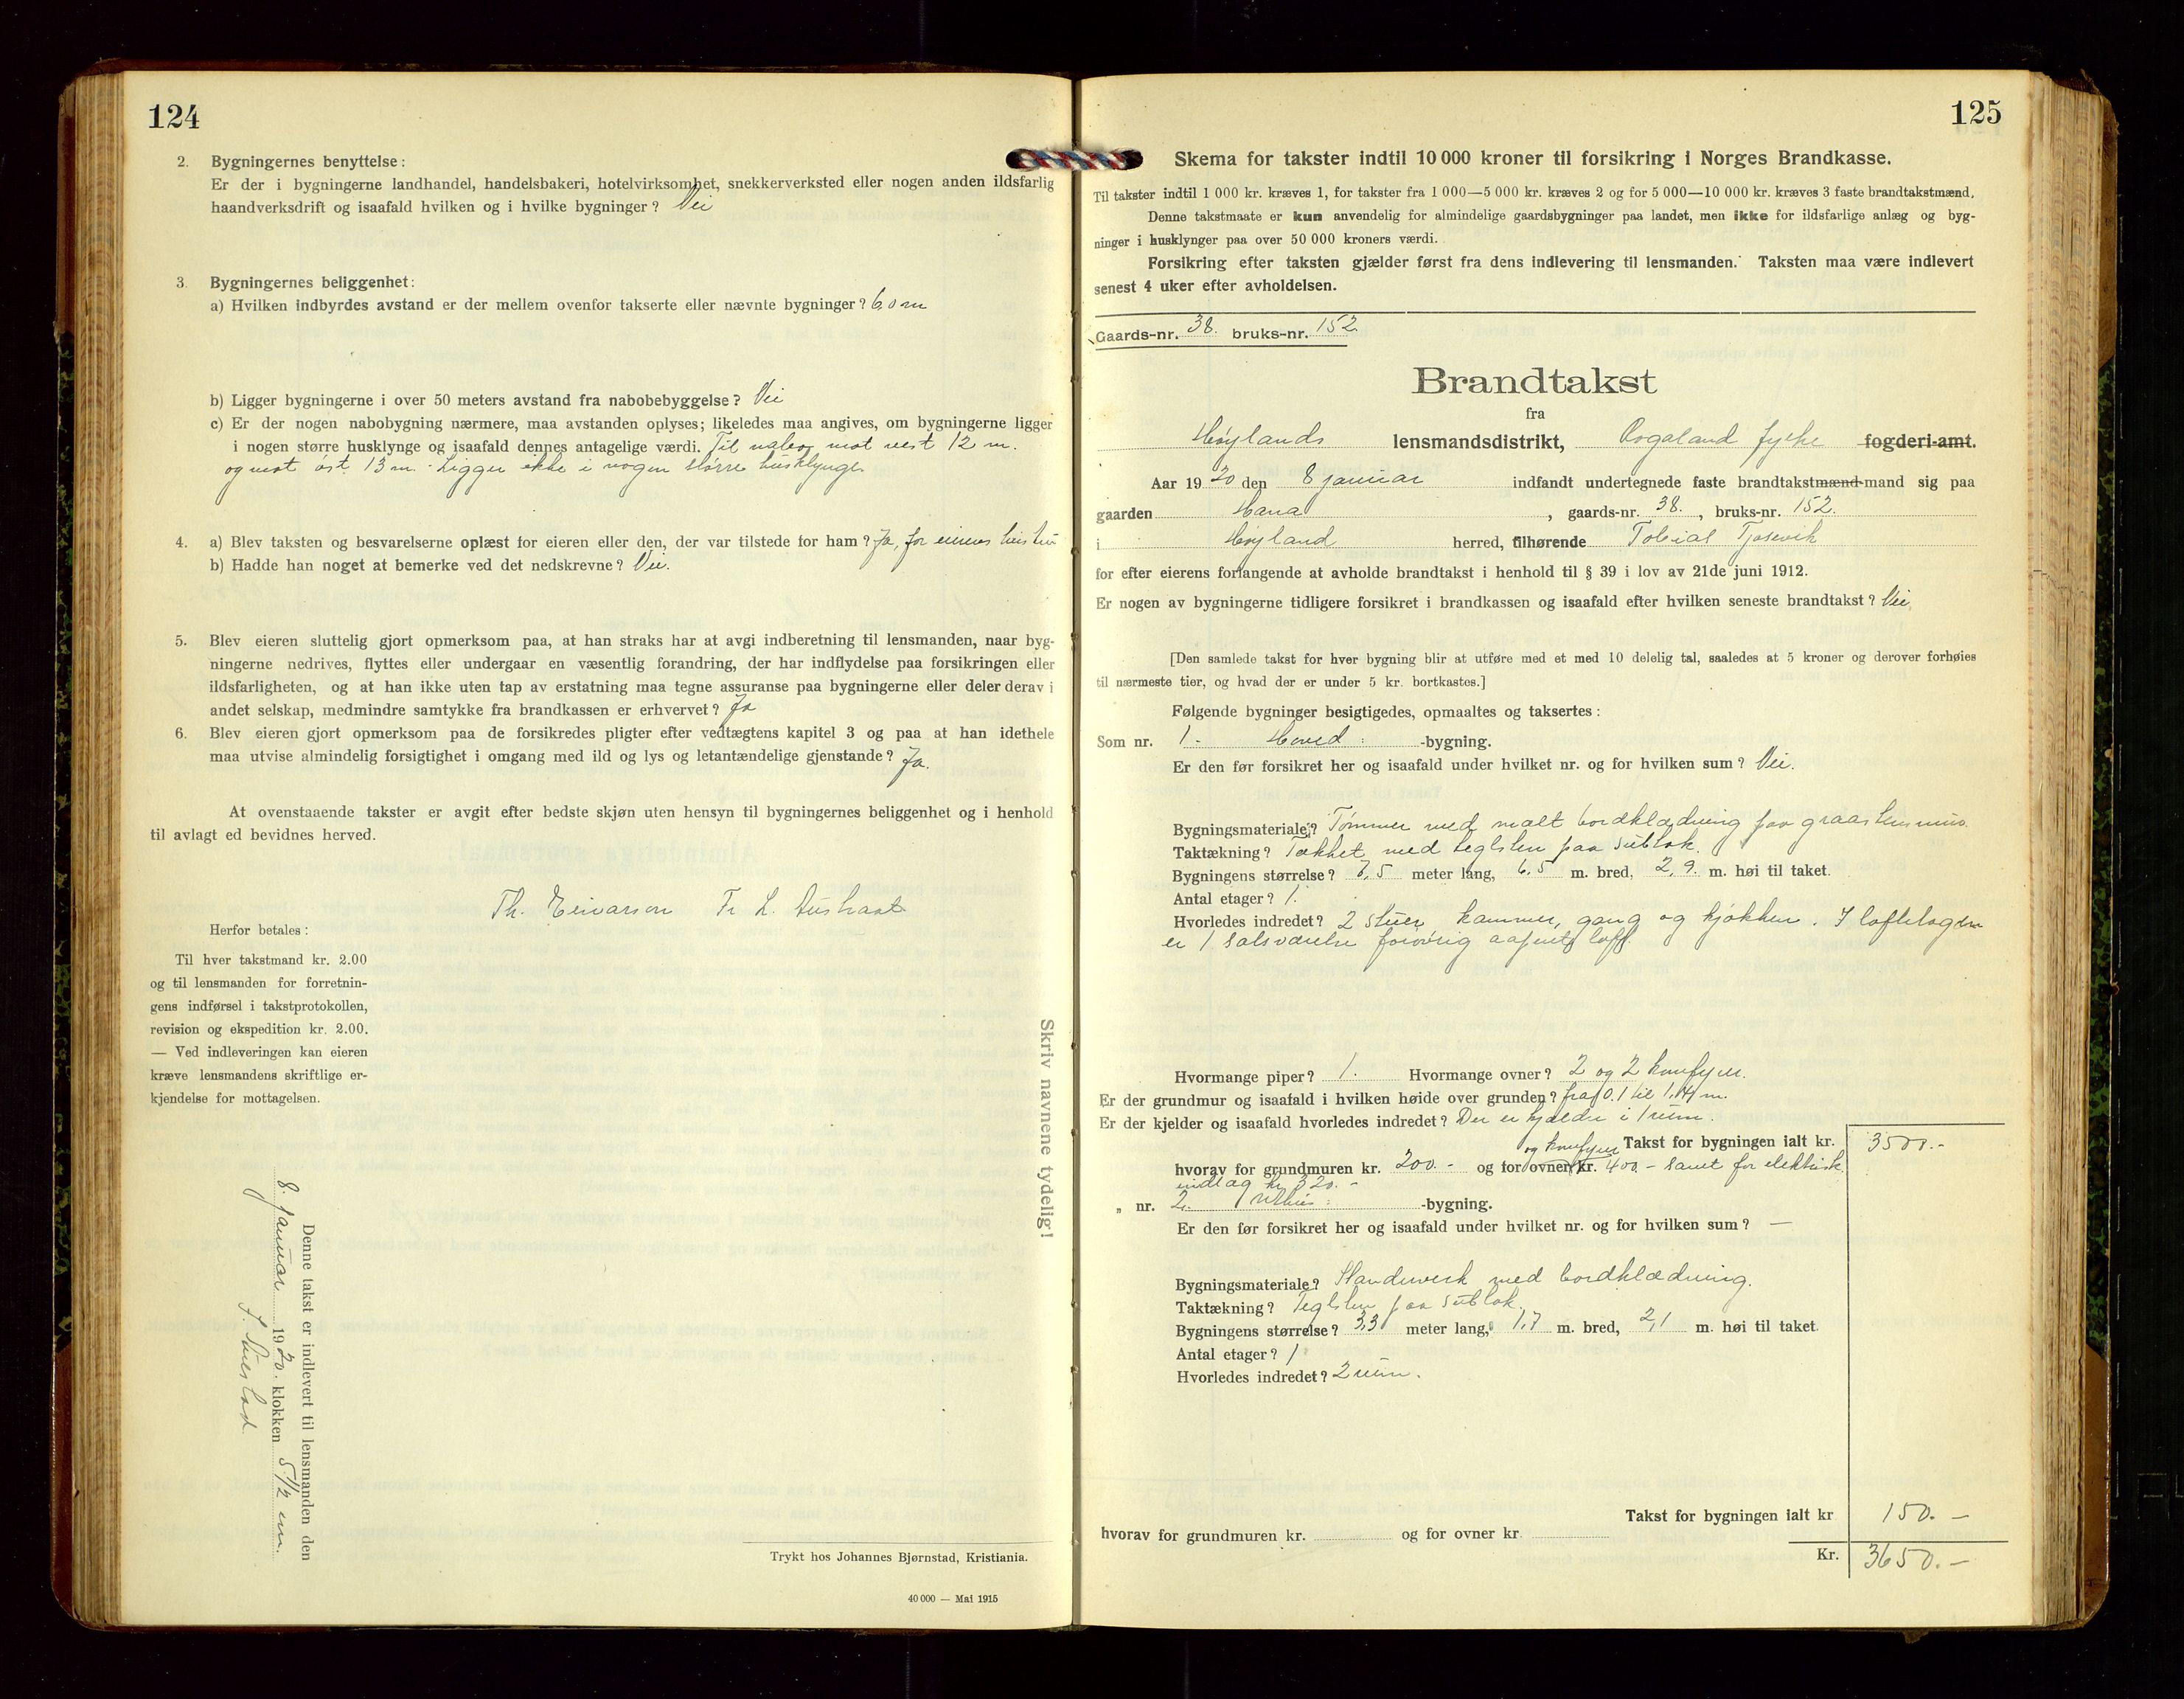 124
2. Bygningernes benyttelse:
Er der i bygningerne landhandel, handelsbakeri, hotelvirksomhet, snekkerverksted eller nogen anden ildsfarlig
haandverksdrift og isaafald hvilken og i hvilke bygninger? Nei
3. Bygningernes beliggenhet:
a) Hvilken indbyrdes avstand er der mellem ovenfor takserte eller nævnte bygninger? 6,0 m
b) Ligger bygningerne i over 50 meters avstand fra nabobebyggelse? Nei
c) Er der nogen nabobygning nærmere, maa avstanden oplyses; likeledes maa angives, om bygningerne ligger
i nogen større husklynge og isaafald dennes antagelige værdi. Til nabo mot vest 12 m.
og mot øst 13 m. Ligger ikke i nogen større husklynge
4. a) Blev taksten og besvarelserne oplæst for eieren eller den, der var tilstede for ham? Ja, for eierens hustru
b) Hadde han noget at bemerke ved det nedskrevne? Nei.
5. Blev eieren sluttelig gjort opmerksom paa, at han straks har at avgi indberetning til lensmanden, naar byg-
ningerne nedrives, flyttes eller undergaar en væsentlig forandring, der har indflydelse paa forsikringen eller
ildsfarligheten, og at han ikke uten tap av erstatning maa tegne assuranse paa bygningerne eller deler derav i
andet selskap, medmindre samtykke fra brandkassen er erhvervet? Ja
6. Blev eieren gjort opmerksom paa de forsikredes pligter efter vedtægtens kapitel 3 og paa at han idethele
maa utvise almindelig forsigtighet i omgang med ild og lys og letantændelige gjenstande? Ja.
At ovenstaaende takster er avgit efter bedste skjøn uten hensyn til bygningernes beliggenhet og i henhold
til avlagt ed bevidnes herved.
Th. Eivarson Fr. L. Austraat
Herfor betales:
Til hver takstmand kr. 2.00
og til lensmanden for forretnin-
gens indførsel i takstprotokollen,
revision og ekspedition kr. 2.00.
— Ved indleveringen kan eieren
kræve lensmandens skriftlige er-
kjendelse for mottagelsen.
Skriv navnene tydelig!
Denne takst er indlevert til lensmanden den
8. januar 1920. klokken 5 1/2 em.
Trykt hos Johannes Bjørnstad, Kristiania.
40 000 — Mai 1915
125
Skema for takster indtil 10 000 kroner til forsikring i Norges Brandkasse.
Til takster indtil 1 000 kr. kræves 1, for takster fra 1 000—5 000 kr. kræves 2 og for 5 000—10 000 kr. kræves 3 faste brandtakstmænd.
Denne takstmaate er kun anvendelig for almindelige gaardsbygninger paa landet, men ikke for ildsfarlige anlæg og byg-
ninger i husklynger paa over 50 000 kroners værdi.
Forsikring efter taksten gjælder først fra dens indlevering til lensmanden. Taksten maa være indlevert
senest 4 uker efter avholdelsen.
Gaards-nr. 38. bruks-nr. 152.
Brandtakst
fra
Høylands lensmandsdistrikt, Rogaland fylke fogderi-amt.
Aar 1920 den 8 januar indfandt undertegnede faste brandtakstmænd-mand sig paa
gaarden Hana, gaards-nr. 38., bruks-nr. 152.
i Høyland herred, tilhørende Tobias Tjosevik
for efter eierens forlangende at avholde brandtakst i henhold til § 39 i lov av 21de juni 1912.
Er nogen av bygningerne tidligere forsikret i brandkassen og isaafald efter hvilken seneste brandtakst? Nei
[Den samlede takst for hver bygning blir at utføre med et med 10 delelig tal, saaledes at 5 kroner og derover forhøies
til nærmeste tier, og hvad der er under 5 kr. bortkastes.]
Følgende bygninger besigtigedes, opmaaltes og taksertes:
Som nr. 1. Hoved:-bygning.
Er den før forsikret her og isaafald under hvilket nr. og for hvilken sum? Nei.
Bygningsmateriale? Tømmer med malt bordklædning paa graastensmur.
Taktækning? Tækket med teglsten paa sutak.
Bygningens størrelse? 7,5 meter lang, 6,5 m. bred, 2,9. m. høi til taket.
Antal etager? 1.
Hvorledes indredet? 2 stuer kammer, gang og kjøkken. I loftetagen
er 1 salsværelse forøvrig aapent loft.
Hvormange piper? 1. Hvormange ovner? 2 og 2 komfyrer.
Er der grundmur og isaafald i hvilken høide over grunden? fra 0,1 til 1,14 m.
Er der kjelder og isaafald hvorledes indredet? Der er kjælder i 1 rum.
Takst for bygningen ialt kr. 3500.-
og komfyrer
hvorav for grundmuren kr. 200.- og for ovner kr. 400 - samt for elektrisk
indlag kr 320.-
„ nr. 2. Uthus:-bygning.
Er den før forsikret her og isaafald under hvilket nr. og for hvilken sum? —
Bygningsmateriale? Standerverk med bordklædning.
Taktækning? Teglsten paa sutak.
Bygningens størrelse? 3,3 meter lang, 1,7 m. bred, 2,1 m. høi til taket.
Antal etager? 1
Hvorledes indredet? 2 rum.
Takst for bygningen ialt kr 150.-
hvorav for grundmuren kr. og for ovner kr.
Kr. 3650.-